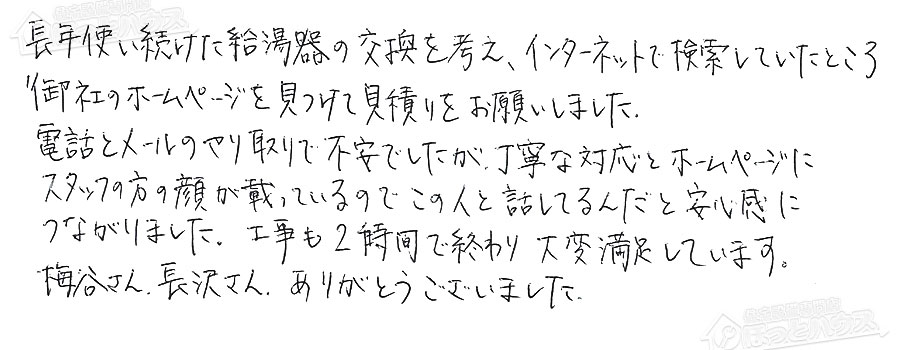 長年使い続けた給湯器の交換を考え、インターネットで検索していたところ
御社のホームページを見つけて見積りをお願いしました.
電話とメールのやり取りで不安でしたが、丁寧な対応とホームページに
スタッフの方の顔が載っているのでこの人と話してるんだと安心感に
つながりました. 工事も2時間で終わり大変満足しています。
梅谷さん. 長沢さん. ありがとうございました.
ほっとハウス